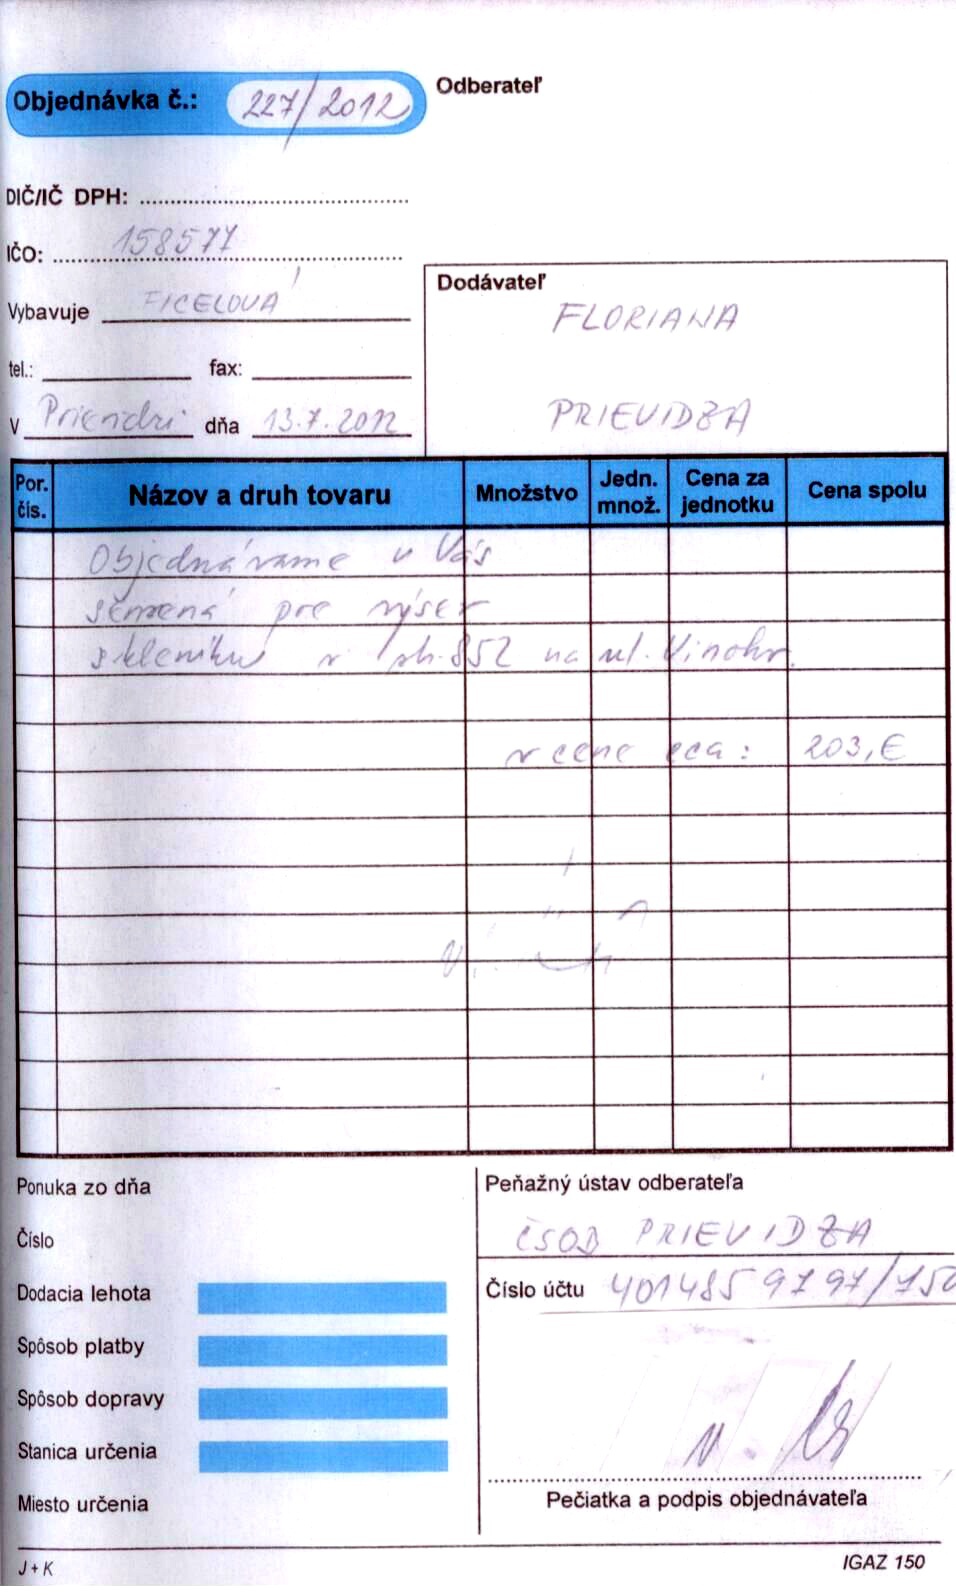 Objednávka č.: 227/2012
Odberateľ
DIČ/IČ DPH:
IČO: 158577
Vybavuje FICELOVÁ
tel.: fax:
V Prievidzi dňa 13.7.2012
Dodávateľ
FLORIANA
PRIEVIDZA
Por. čís. Názov a druh tovaru Množstvo Jedn. množ. Cena za jednotku Cena spolu
Objednávame u Vás
semená pre výsev
skleníku v sk. 852 na ul. Vinohr.
v cene cca: 203,€
Ponuka zo dňa
Číslo
Dodacia lehota
Spôsob platby
Spôsob dopravy
Stanica určenia
Miesto určenia
Peňažný ústav odberateľa
ČSOB PRIEVIDZA
Číslo účtu 4014859797/750
Pečiatka a podpis objednávateľa
J + K
IGAZ 150